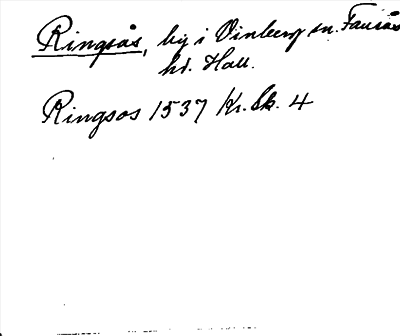 Ringsås, by i Vinberg sn. Faurås
hd. Hall.
Ringsos 1537 Kr. Sk. 4